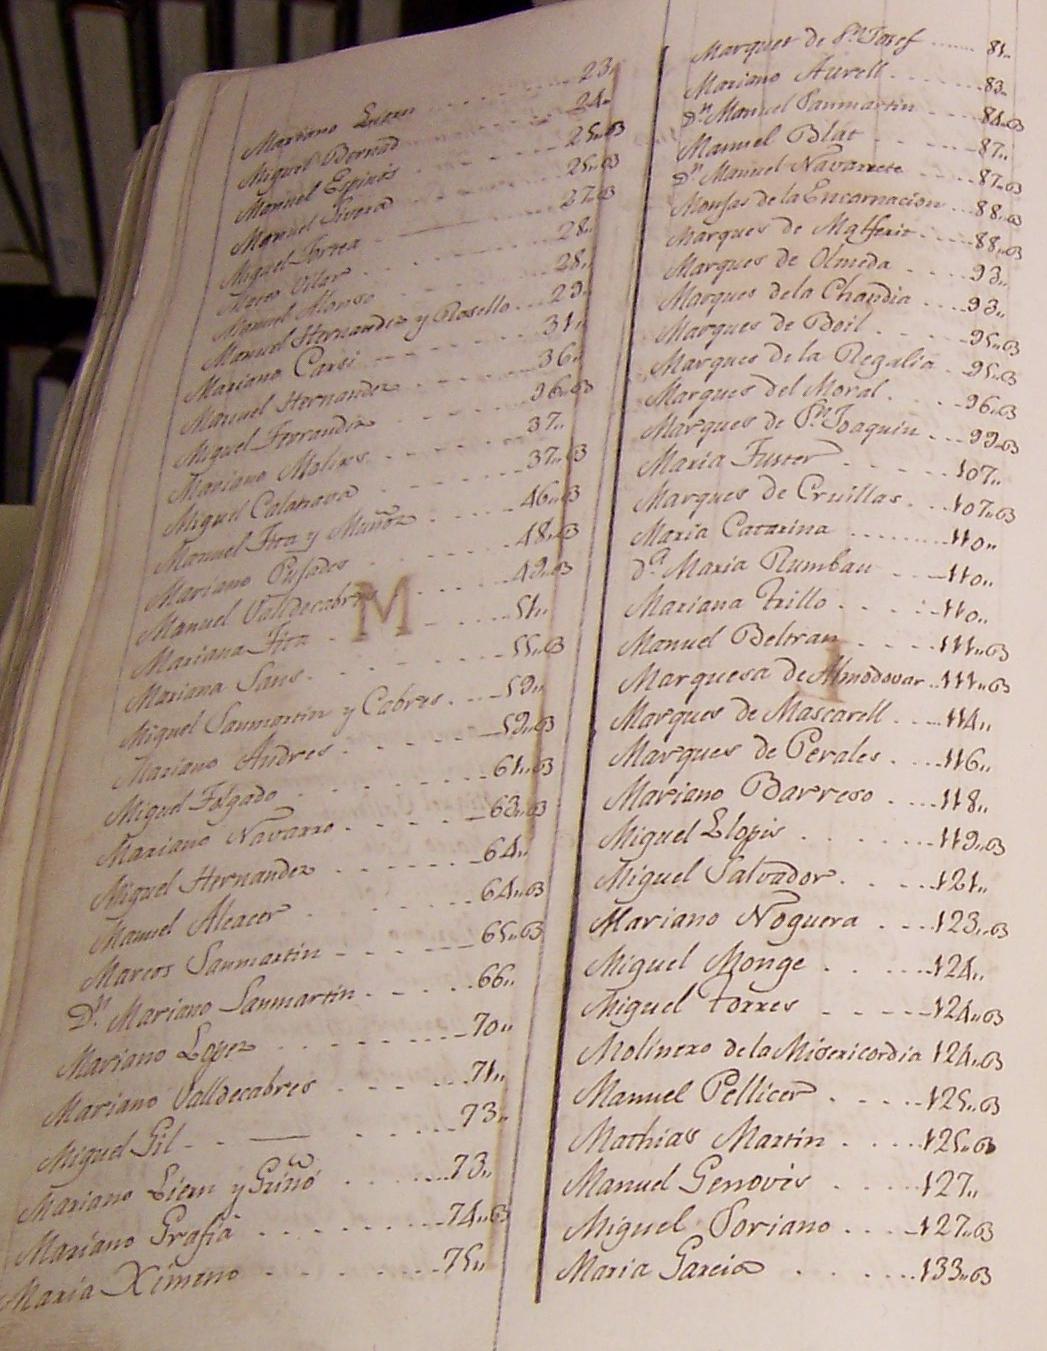 Mariano 23,,
Miguel Bernad 24,,
Manuel Espinos 25,,63
Manuel Rivera 25,,63
Miguel Torrea 27,,63
Vilar 28,,
Manuel Alonso 28,,
Manuel Hernandez y Rosello 29,,
Mariano Carsi 31,,
Manuel Hernandez 36,,
Miguel 96,,63
Mariano Molins 37,,
Miguel Calatrava 37,,63
Manuel Fita y Muñoz 46,,63
Mariano Pusades 48,,63
Manuel Valldecabres 49,,63
Mariana Fita 51,,
Mariana Sans 55,,63
Miguel Sanmartin y Cabres 59,,
Mariano Andres 59,,63
Miguel Folgado 61,,63
Mariano Navarro 63,,63
Miguel Hernandez 64,,
Manuel Alcacer 64,,63
Marcos Sanmartin 65,,63
Dn. Mariano Sanmartin 66,,
Mariano Lopez 70,,
Mariano Valldecabres 71,,
Miguel Gil 73,,
Mariano Liern y Griñó 73,,
Mariano Grafia 74,,63
Maria Ximeno 75,,
M
Marques de Sn. Josef 81,,
Mariano Aurell 83,,
Dn. Manuel Sanmartin 84,,63
Manuel Blat 87,,
Dn. Manuel Navarrete 87,,63
Monjas de la Encarnacion 88,,63
Marques de Malferit 88,,63
Marques de Olmeda 93,,
Marques de la 93,,
Marques de Boil 95,,63
Marques de la Regalia 95,,63
Marques del Moral 96,,63
Marques de Sn. Joaquin 99,,63
Maria Fuster 107,,
Marques de Cruillas 107,,63
Maria Catarina 110,,
Da. Maria Rumbau 110,,
Mariana Trillo 110,,
Manuel Beltran 111,,63
Marquesa de Almodovar 111,,63
Marques de Mascarell 114,,
Marques de Perales 116,,
Mariano Barreso 118,,
Miguel Llopis 119,,63
Miguel Salvador 121,,
Mariano Noguera 123,,63
Miguel Monge 124,,
Miguel Torres 124,,63
Molinero de la Misericordia 124,,63
Manuel Pellicer 125,,63
Mathias Martin 125,,63
Manuel Genovis 127,,
Miguel Soriano 127,,63
Maria Garcia 133,,63